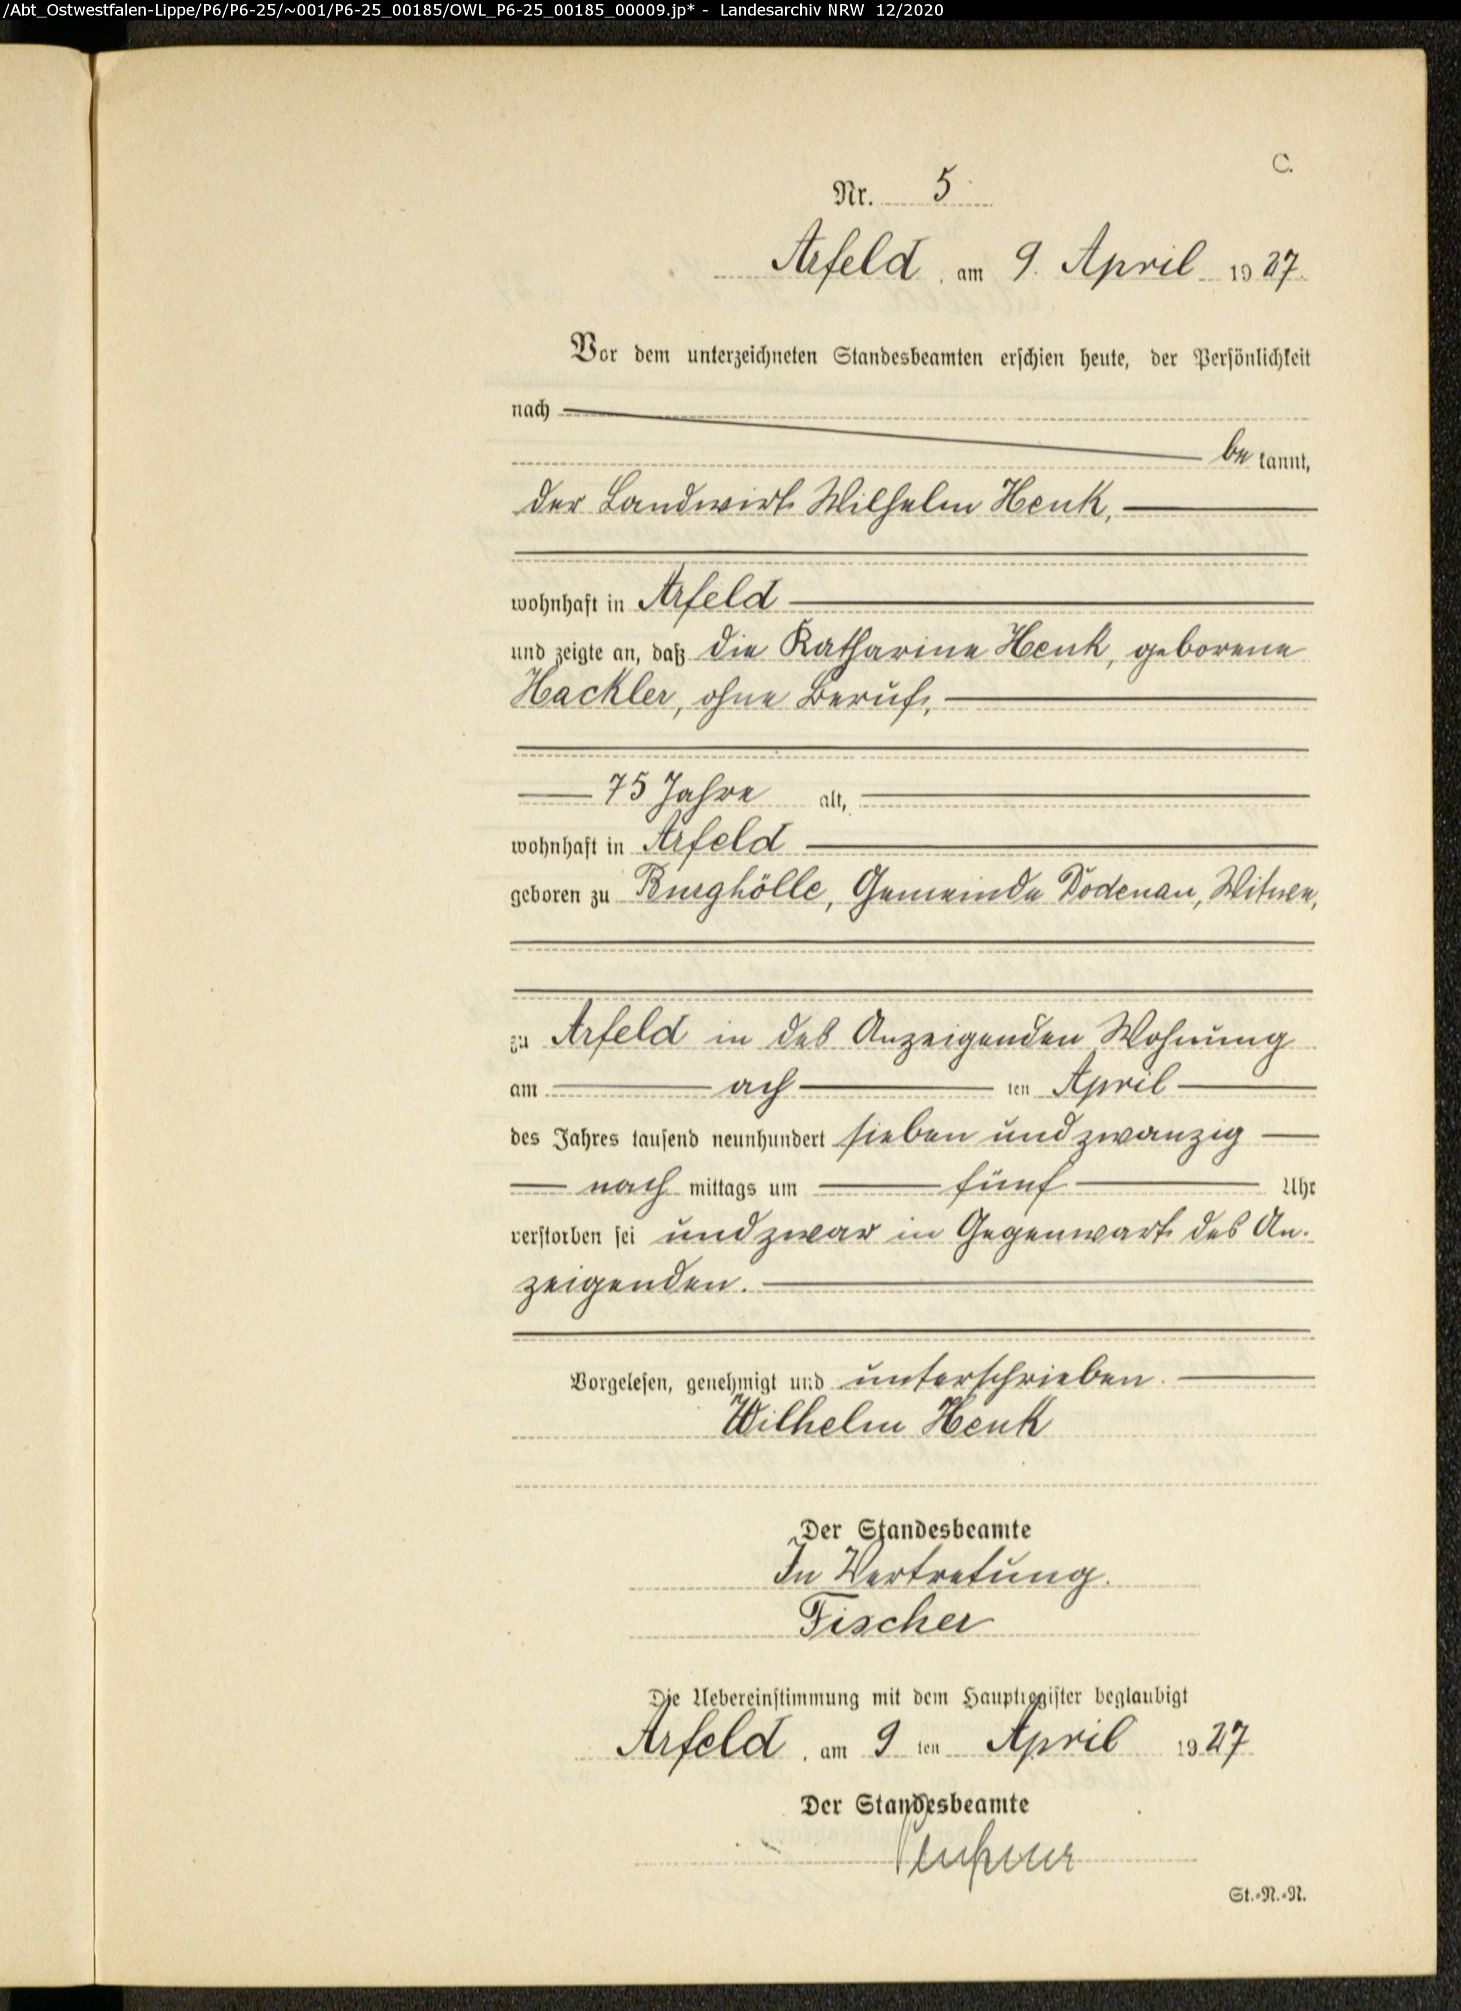 /Abt_Ostwestfalen-Lippe/P6/P6-25/~001/P6-25_00185/OWL_P6-25_00185_00009.jp* - Landesarchiv NRW 12/2020
C.
Nr. 5
Arfeld, am 9. April 1927.
Vor dem unterzeichneten Standesbeamten erschien heute, der Persönlichkeit
nach
be kannt,
der Landwirt Wilhelm Henk,
wohnhaft in Arfeld
und zeigte an, daß die Katharine Henk, geborene
Hackler, ohne Beruf,
75 Jahre alt,
wohnhaft in Arfeld
geboren zu Burghölle, Gemeinde Dodenau, Witwe,
zu Arfeld in des Anzeigenden Wohnung
am ach ten April
des Jahres tausend neunhundert sieben und zwanzig
nach mittags um fünf Uhr
verstorben sei und zwar in Gegenwart des An-
zeigenden.
Vorgelesen, genehmigt und unterschrieben.
Wilhelm Henk
Der Standesbeamte
In Vertretung.
Fischer
Die Uebereinstimmung mit dem Hauptregister beglaubigt
Arfeld, am 9 ten April 1927
Der Standesbeamte
St.-N.-N.